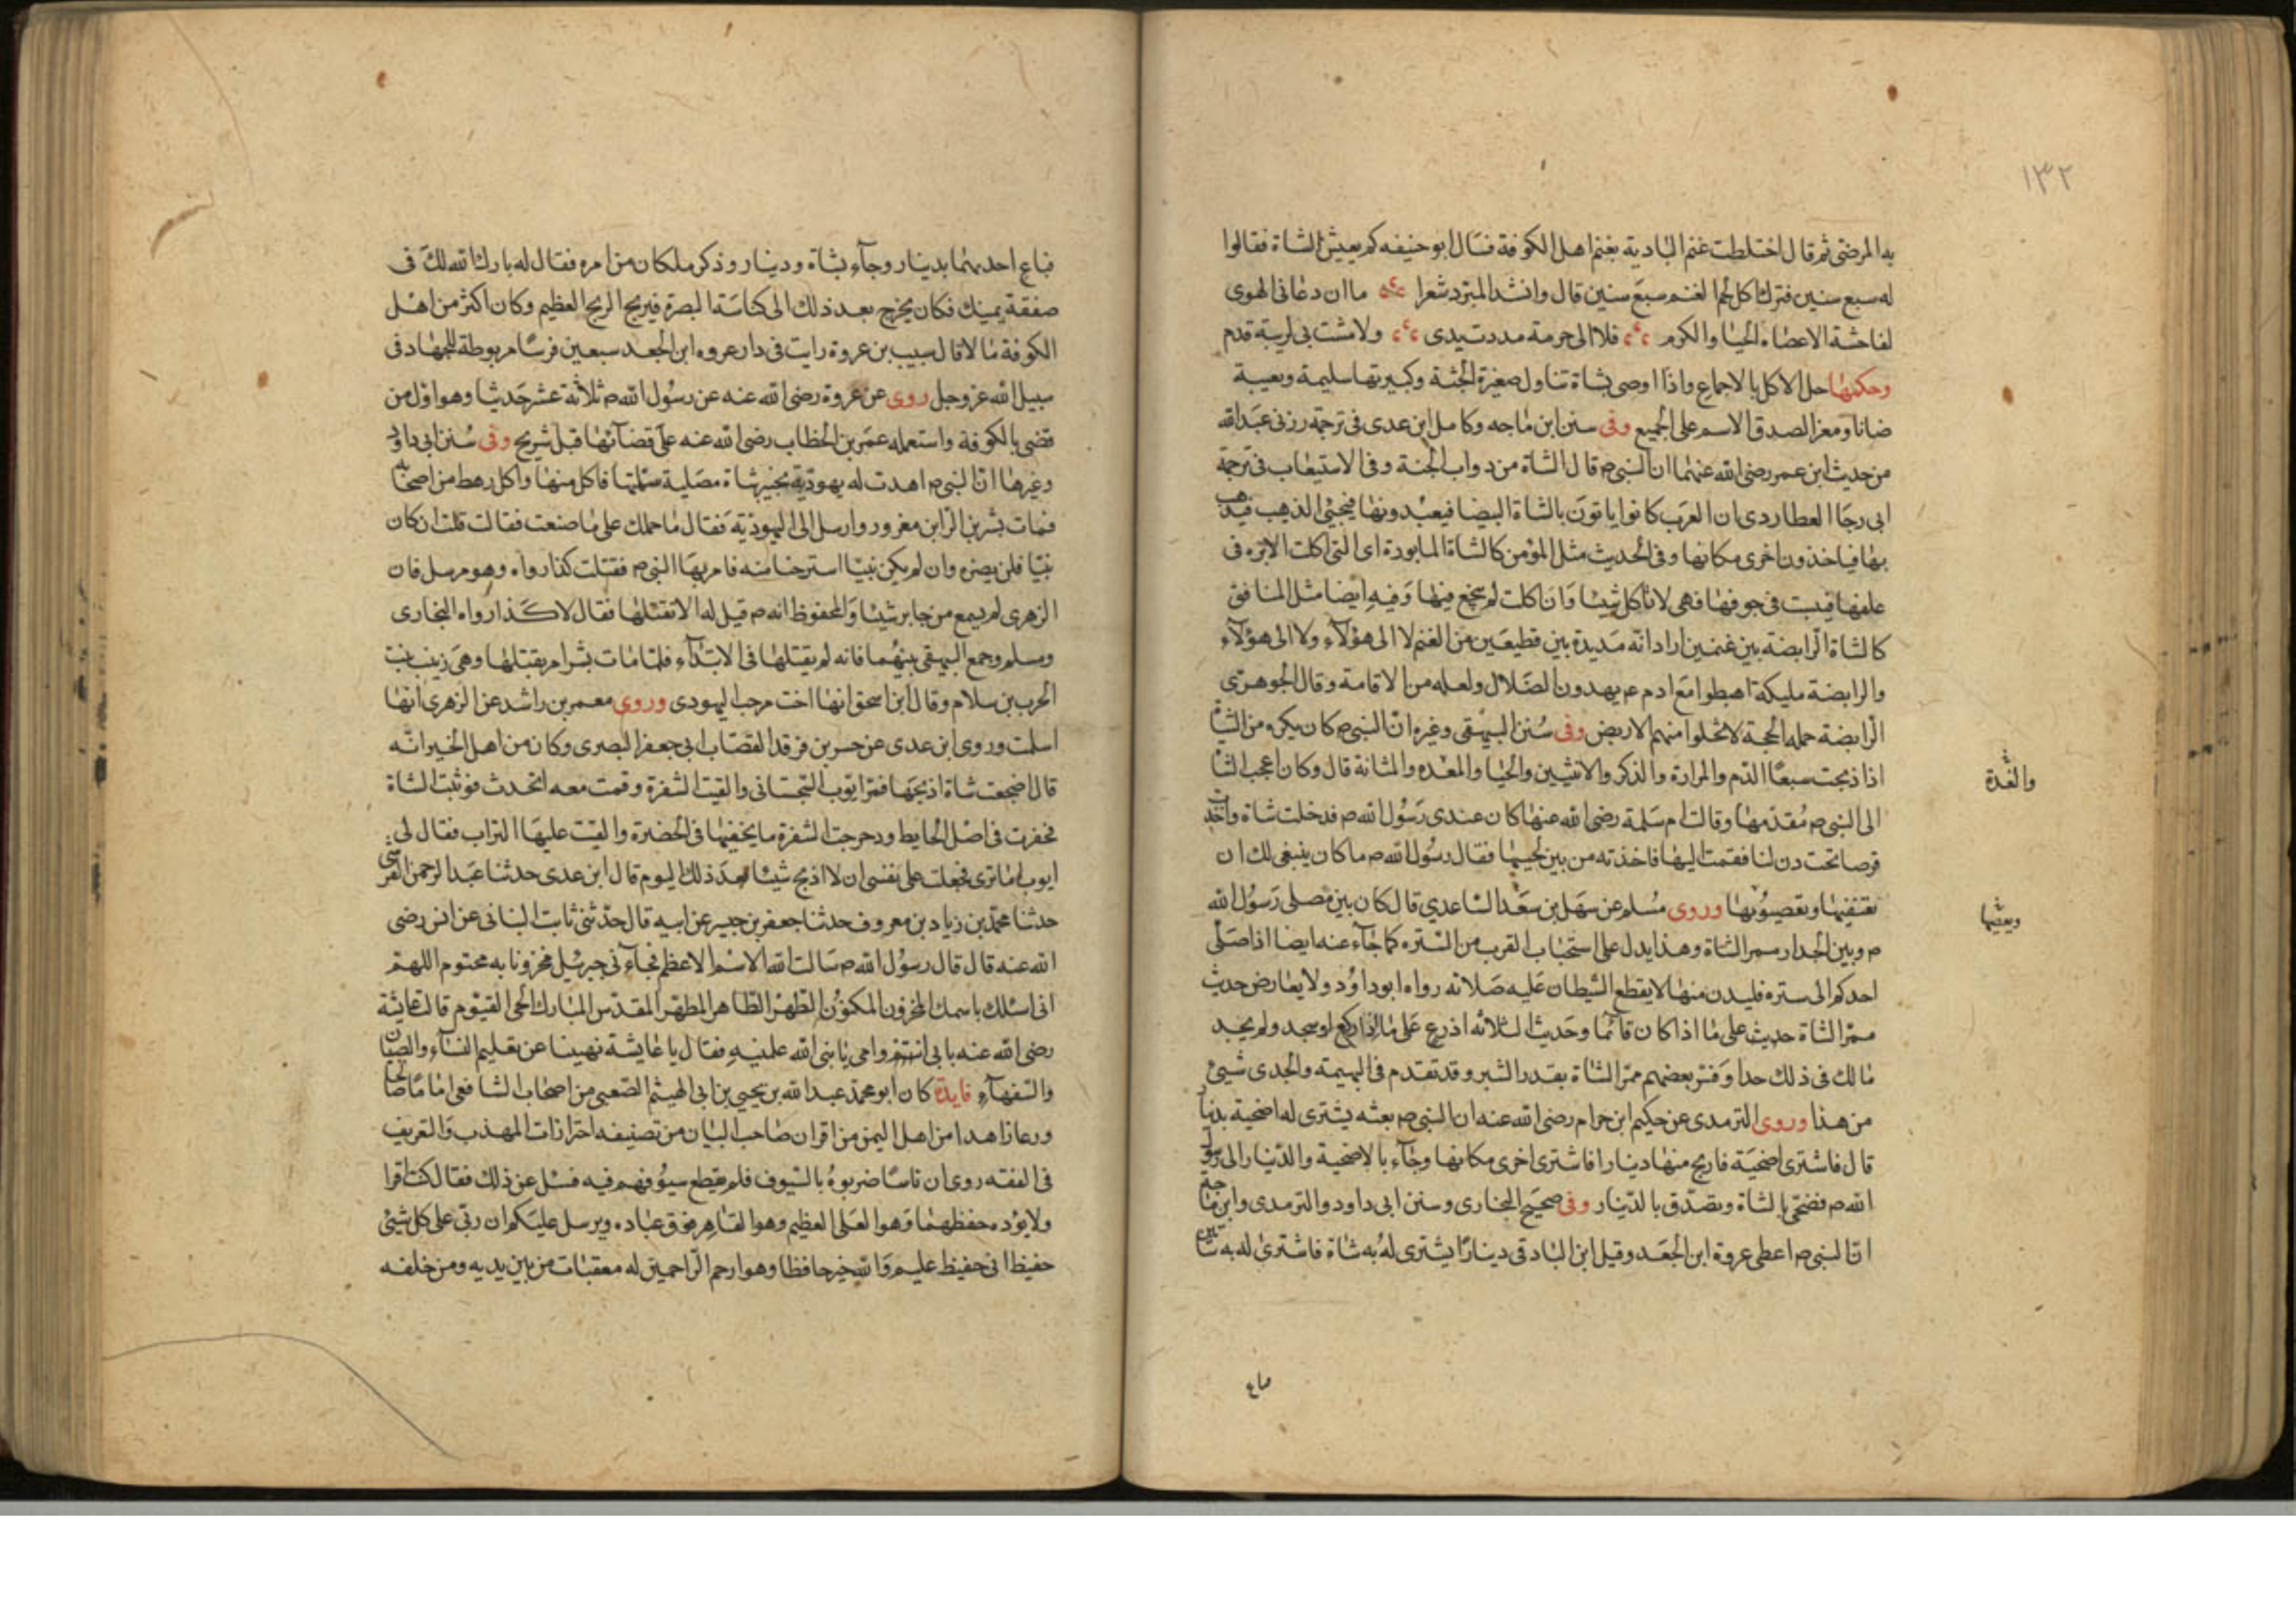 ١٣٢
به المرضى ثم قال اختلطت غنم البادية بغنم اهل الكوفة فسال ابو حنيفه كم يعيش الشاة فقالوا
له سبع سنين فترك اكل لحم الغنم سبع سنين قال وانشد المبرد شعرا ما ان دعانى الهوى
لفاحشة الاعصاه الحيا والكرم فلا الى حرمة مددت يدى ولا مشت بى لريبة قدم
وحكمها حل الاكل بالاجماع واذا اوصى بشاة تناول صغيرة الجثة وكبيرتها سليمة ومعيبة
ضانا ومعزا لصدق الاسم على الجميع وفى سنن ابن ماجه وكامل ابن عدى فى ترجمة رزنى عبد الله
من حديث ابن عمر رضى الله عنهما ان النبى م قال الشاة من دواب الجنة وفى الاستيعاب فى ترجمة
ابى رجا العطاردى ان العرب كانوا ياتون بالشاة البيضا فيعبدونها فيجئ الذيب فيذهب
بها فياخذون اخرى مكانها وفى الحديث مثل المؤمن كالشاة المابورة اى التى اكلت الابره فى
علفها فنشبت فى جوفها فهى لا تاكل شيئا وان اكلت لم ينجع فيها وفيه ايضا مثل المنافق
كالشاة الرابضة بين غنمين اراد انه مديدة بين قطيعين من الغنم لا الى هؤلآء ولا الى هؤلآء
والرابضة مليكة اهبطوا مع ادم عم يهدون الضلال ولعله من الاقامة وقال الجوهرى
الرابضة حملة الحجة لا تخلوا منهم الارض وفى سنن البيهقى وغيره ان النبى م كان يكره من الشاة
اذا ذبحت سبعا الدم والمرارة والذكر والانثيين والحيا والمعده والمثانة قال وكان اعجب الشا
والغدة
الى النبى م مقدمها وقالت ام سلمة رضى الله عنها كان عندى رسول الله م فدخلت شاة واخذت
قرصا تحت دن لنا فقمت اليها فاخذته من بين لحييها فقال رسول الله م ما كان ينبغى لك ان
تعنقيها وتعصيونها وروى مسلم عن سهل بن سعد الساعدي قال كان بين مصلى رسول الله
م وبين الجدار ممر الشاة وهذا يدل على استحباب القرب من الستره كما جآء عنه ايضا اذا صلى
احدكم الى ستره فليدن منها لا يقطع الشيطان عليه صلاته رواه ابو داود ولا يعارض حديث
ممر الشاة حديث على ما اذا كان قائما وحديث الثلاثه اذرع على ما اذا ركع او سجد ولم يجد
مالك فى ذلك حدا وفسر بعضهم ممر الشاة بقدر الشبر وقد تقدم فى البهيمة والجدى شيئ
من هذا وروى الترمدى عن حكيم ابن حرام رضى الله عنه ان النبى م بعثه يشترى له اضحية بدينار
قال فاشترى اضحية فاربح منها دينارا فاشترى اخرى مكانها وجآء بالاضحية والدينار الى رسول
الله م فضحى بالشاة وتصدق بالدينار وفى صحيح البخارى وسنن ابى داود والترمدى وابن ماجه
ان النبى م اعطى عروة ابن الجعد وقيل ابن البادقى دينارا يشترى له به شاة فاشترى له به شاتين
فباع
فباع احديهما بدينار وجآء بشاة ودينار وذكر ما كان من امره فقال له بارك الله لك فى
صفقة يمينك فكان يخرج بعد ذلك الى كناسة البصرة فيربح الربح العظيم وكان اكثر من اهل
الكوفة مالا قال سبيب بن عروة رايت فى دار عروه ابن الجعد سبعين فرسا مربوطة للجهاد فى
سبيل الله عز وجل روى عن عروة رضى الله عنه عن رسول الله م ثلاثة عشر حديثا وهو اول من
قضى بالكوفة واستعمله عمر بن الخطاب رضى الله عنه على قضآئها قبل شريح وفى سنن ابى داود
وغيرها ان النبى م اهدت له يهودية بخيبر شاة مصلية سمتها فاكل منها واكل رهط من اصحابه
فمات بشر بن البرا بن مغرور وارسل الى اليهودية فقال ما حملك على ما صنعت فقالت قلت ان كان
نبيا فلن يضره وان لم يكن نبيا استرحنا منه فامر بها النبى م فقتلت كذا رواه وهو مرسل فان
الزهرى لم يسمع من جابر شيئا والمحفوظ انه م قيل له الا تقتلها فقال لا كذا رواه البخارى
ومسلم وجمع البيهقى بينهما فانه لم يقتلها فى الابتدآء فلما مات بشر امر بقتلها وهى زينب بنت
الحرب بن سلام وقال ابن اسحق انها اخت مرحب اليهودى وروى معمر بن راشد عن الزهرى انها
اسلمت وروى ابن عدى عن حسن بن فرقد القصاب ابى جعفر البصرى وكان من اهل الخير انه
قال اضجعت شاة اذبحها فمر ايوب السختيانى والقيت الشفرة وقمت معه اتحدث فوثبت الشاة
فحفرت فى اصل الحايط ودحرجت الشفرة ما يخفيها فى الحضرة والقيت عليها التراب فقال لى
ايوب اما ترى فجعلت على نفسى ان لا اذبح شيئا بعد ذلك اليوم قال ابن عدى حدثنا عبد الرحمن القرشى
حدثنا محمد بن زياد بن معروف حدثنا جعفر بن جبير عن ابيه قال حدثنى ثابت البنانى عن انس رضى
الله عنه قال قال رسول الله م سالت الله الاسم الاعظم فجآءنى جبرئيل مخزونا به مختوم اللهم
انى اسئلك باسمك المخزون المكنون الطهر الطاهر المطهر المقدس المبارك الحى القيوم قالت عايشة
رضى الله عنه بابى انت وامى يا نبى الله علمنيه فقال يا عايشة نهينا عن تعليم النسآء والصبيان
والسفهآء فايدة كان ابو محمد عبد الله بن يحيى بن ابى الهيثم الصعبى من اصحاب الشافعى اماما صالحا
ورعا زاهدا من اهل اليمن من اقران صاحب البيان من تصنيفه احترازات المهذب والتعريف
فى الفقه روى ان ناسا ضربوه بالسيوف فلم يقطع سيوفهم فيه فسئل عن ذلك فقال كنت اقرا
ولا يؤده حفظهما وهو العلى العظيم وهو القاهر فوق عباده ويرسل عليكم ان ربى على كل شيئ
حفيظ انى حفيظ عليم والله خير حافظا وهو ارحم الراحمين له معقبات من بين يديه ومن خلفه